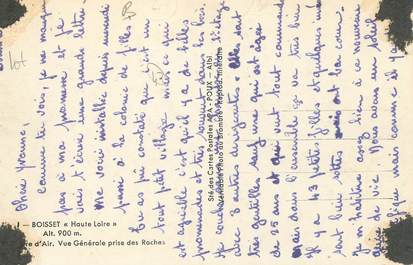 Chère Yvonne,
Comme tu vois, je ne manque
pas à ma promesse et je
vais t'écrire une grande lettre
Me voici installée depuis mercredi
passé à la colonie de filles
Tu as pu constaté que c'est un
tout petit village mais ce qui
est agréable c'est qu'il y a de belles
promenades et très souvent dans les bois.
Je couche
avec 3 autres dirigeantes elles sont
très gentilles sauf une qui est âgée
de 25 ans et qui veut tout commander
mais dans l'ensemble ça va très bien
Il y a 43 petites filles et quelques unes
sont bien sottes mais ont bon cœur.
Je m'habitue assez bien à ce nouveau
genre de vie. Nous avons un soleil
magnifique mais comme il y
BOISSET « Haute Loire »
Alt. 900 m.
re d'Air. Vue Générale prise des Roches
Sté des Cartes Postales APA-POUX - Albi
Véritable Photo au Bromure - Reprod. Interdite